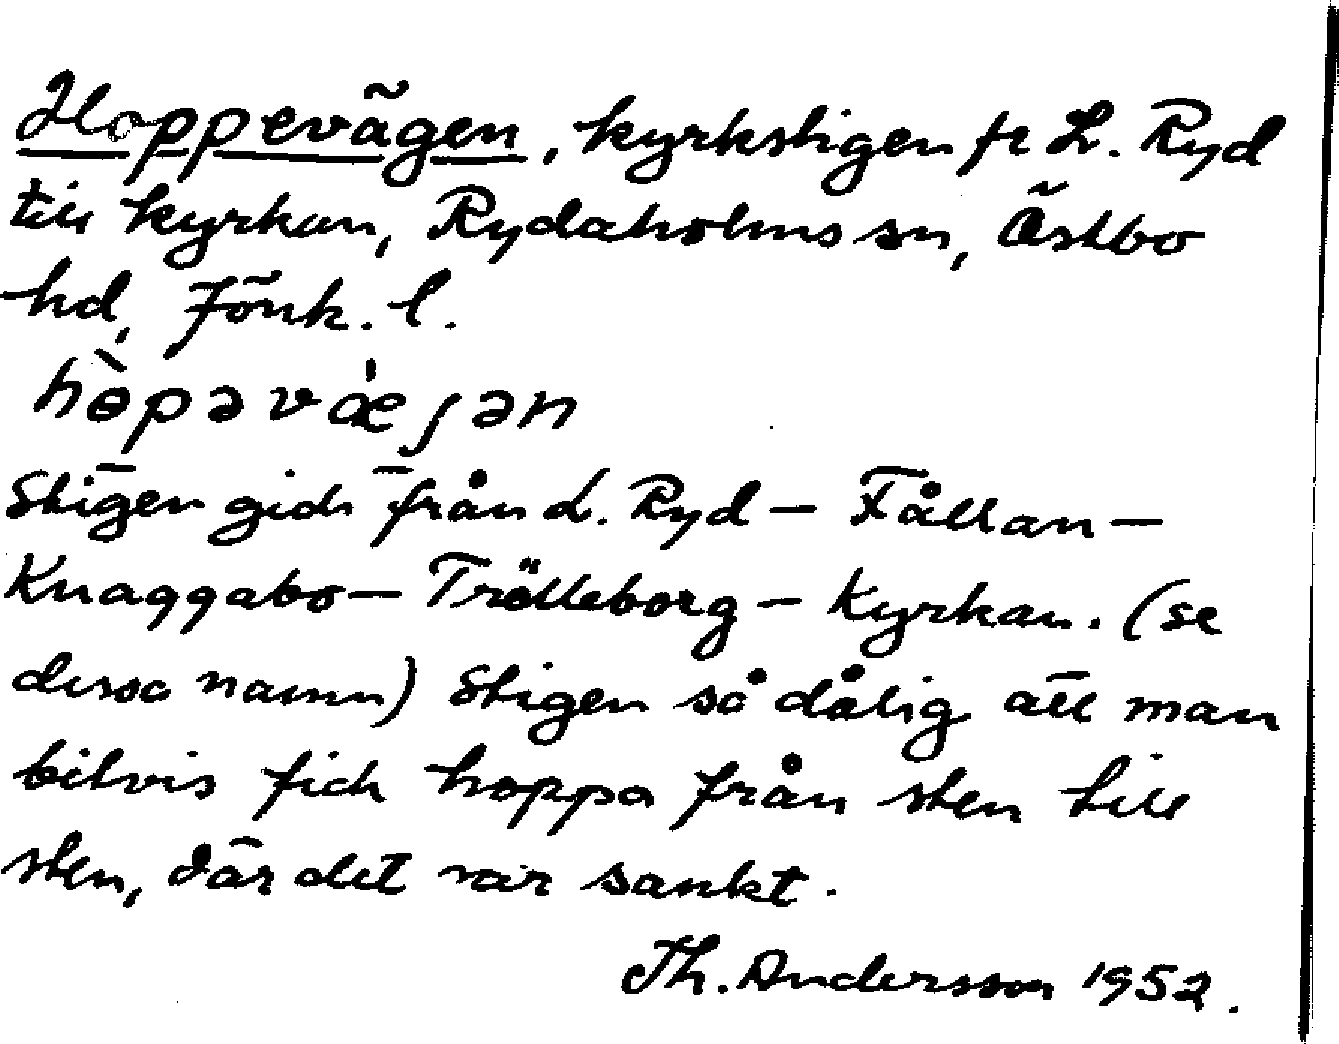 Hoppevägen, kyrkstigen fr L. Ryd
till kyrkan, Rydaholms sn, Östbo
hd, Jönk. l.
hɵ̀pəvǽʃən
Stigen gick från L. Ryd – Fållan –
Knaggabo – Trölleborg – Kyrkan. (se
dessa namn) Stigen så dålig att man
bitvis fick hoppa från sten till
sten, där det var sankt.
Th. Andersson 1952.